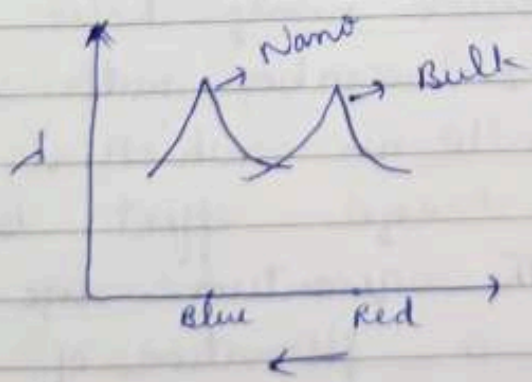 Nano
Bulk
λ
Blue
Red